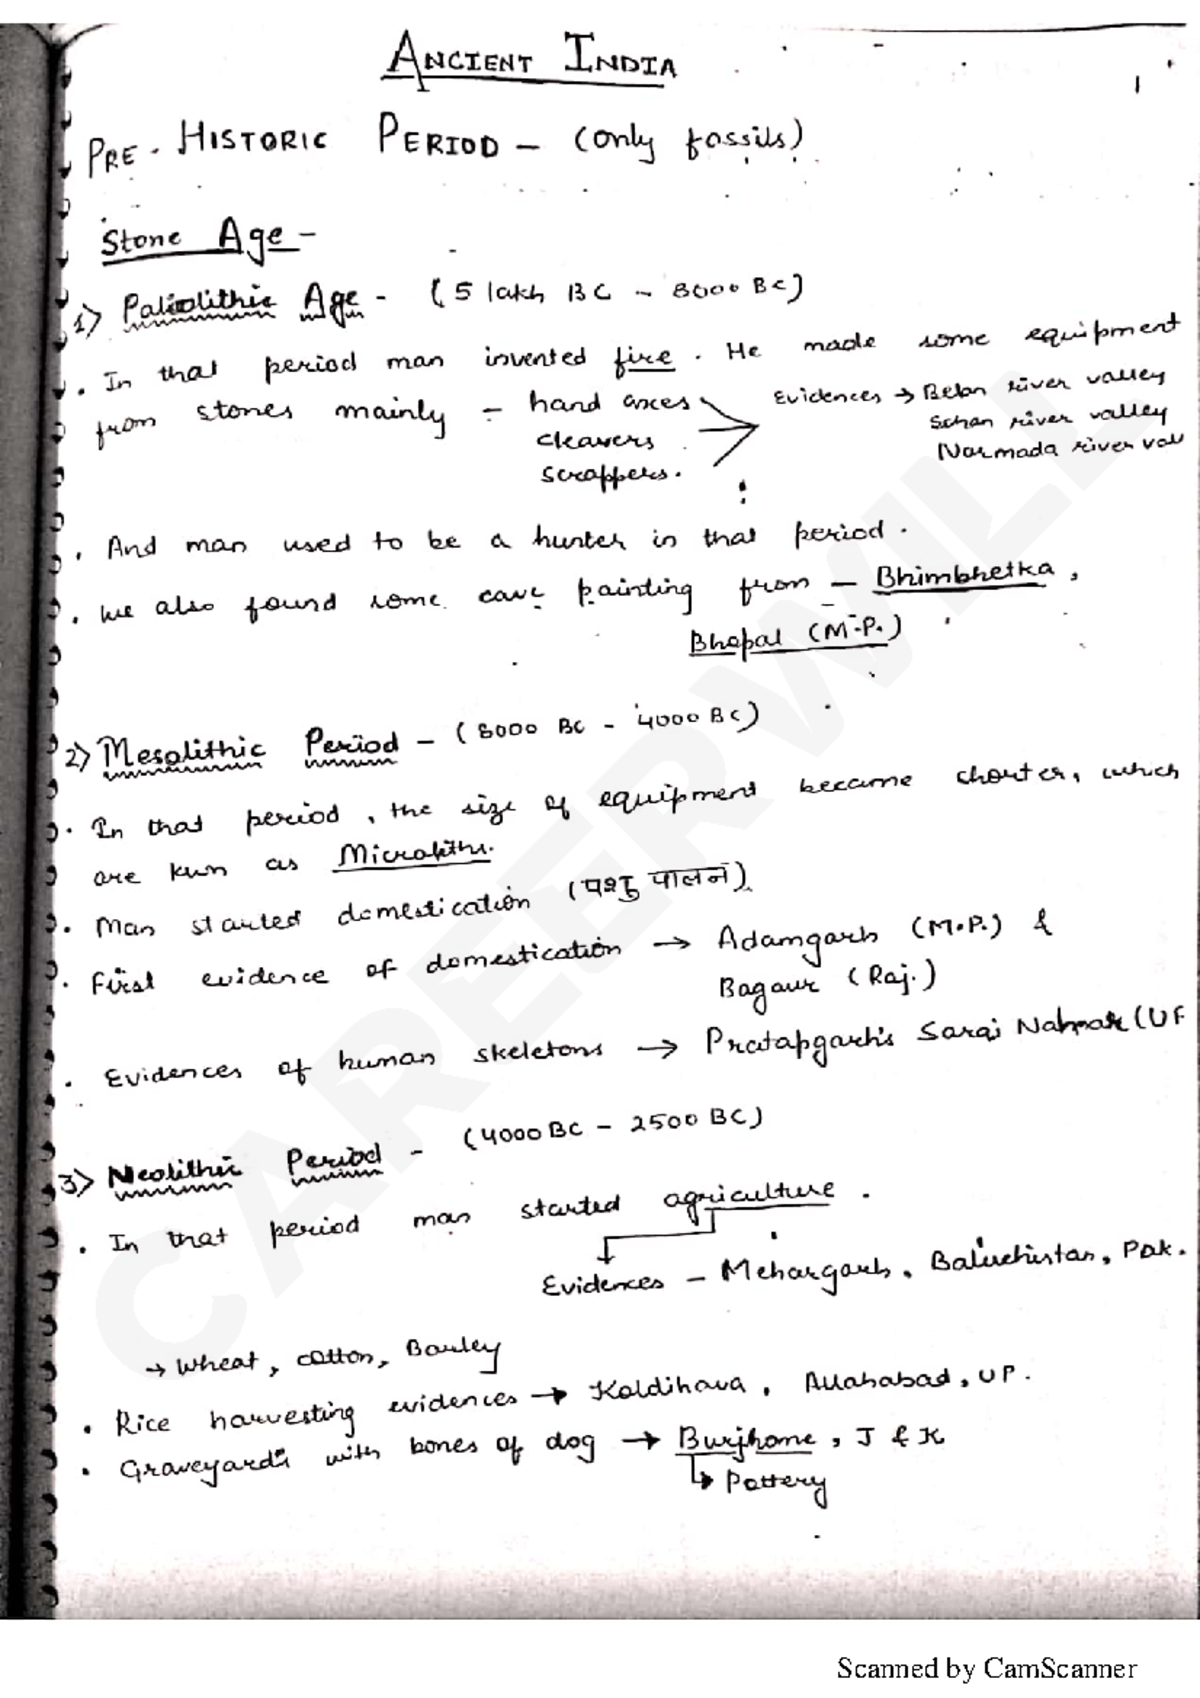 ANCIENT INDIA
1
PRE-HISTORIC PERIOD - (only fossils)
Stone Age -
1) Paliolithic Age - (5 lakh BC - 8000 BC)
. In that period man invented fire. He made some equipment
from stones mainly - hand axes
cleavers
scrappers.
Evidences → Belan river valley
Sohan river valley
Narmada river val
. And man used to be a hunter in that period.
. We also found some cave painting from - Bhimbhetka,
Bhopal (M.P.)
2) Mesolithic Period - (8000 BC - 4000 BC)
. In that period, the size of equipment became shorter, which
are kwn as Microliths.
. Man started domestication (पशु पालन)
. First evidence of domestication → Adamgarh (M.P.) &
Bagaur (Raj.)
. Evidences of human skeletons → Pratapgarh's Sarai Nahar (UP
3) Neolithic Period - (4000 BC - 2500 BC)
. In that period man started agriculture.
Evidences - Mehargarh, Baluchistan, Pak.
→ Wheat, cotton, Barley
. Rice harvesting evidences → Koldihava, Allahabad, UP.
. Graveyards with bones of dog → Burjhome, J & K
↳ Pottery
CAREERWILL
Scanned by CamScanner